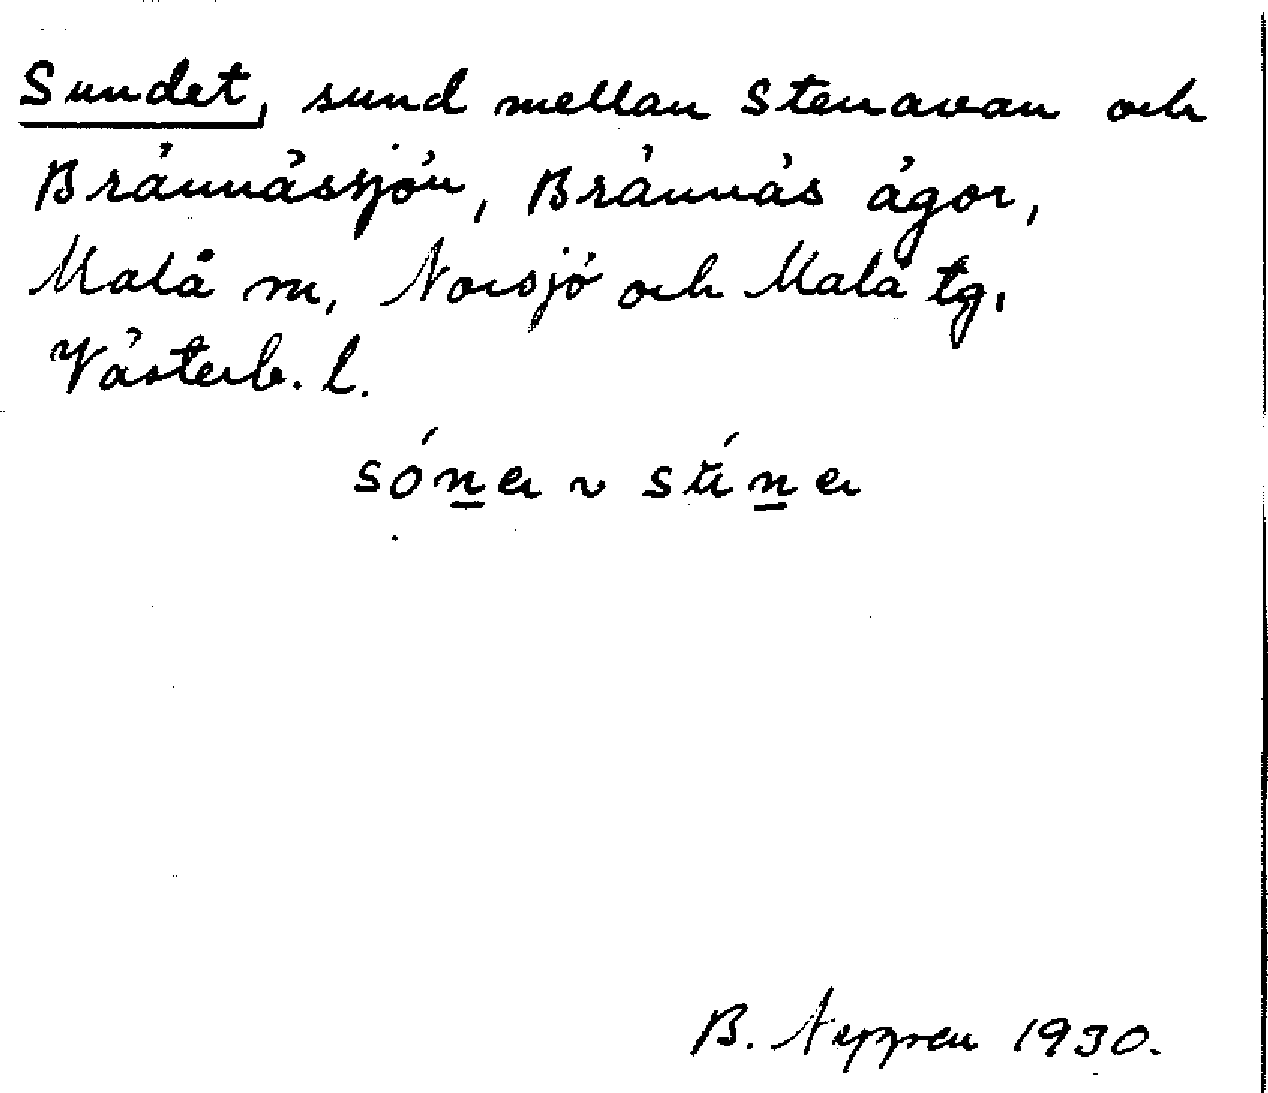 Sundet, sund mellan Stenavan och
Brännässjön, Brännäs ägor,
Malå m, Norsjö och Malå tg,
Västerb. l.
B. 1930.